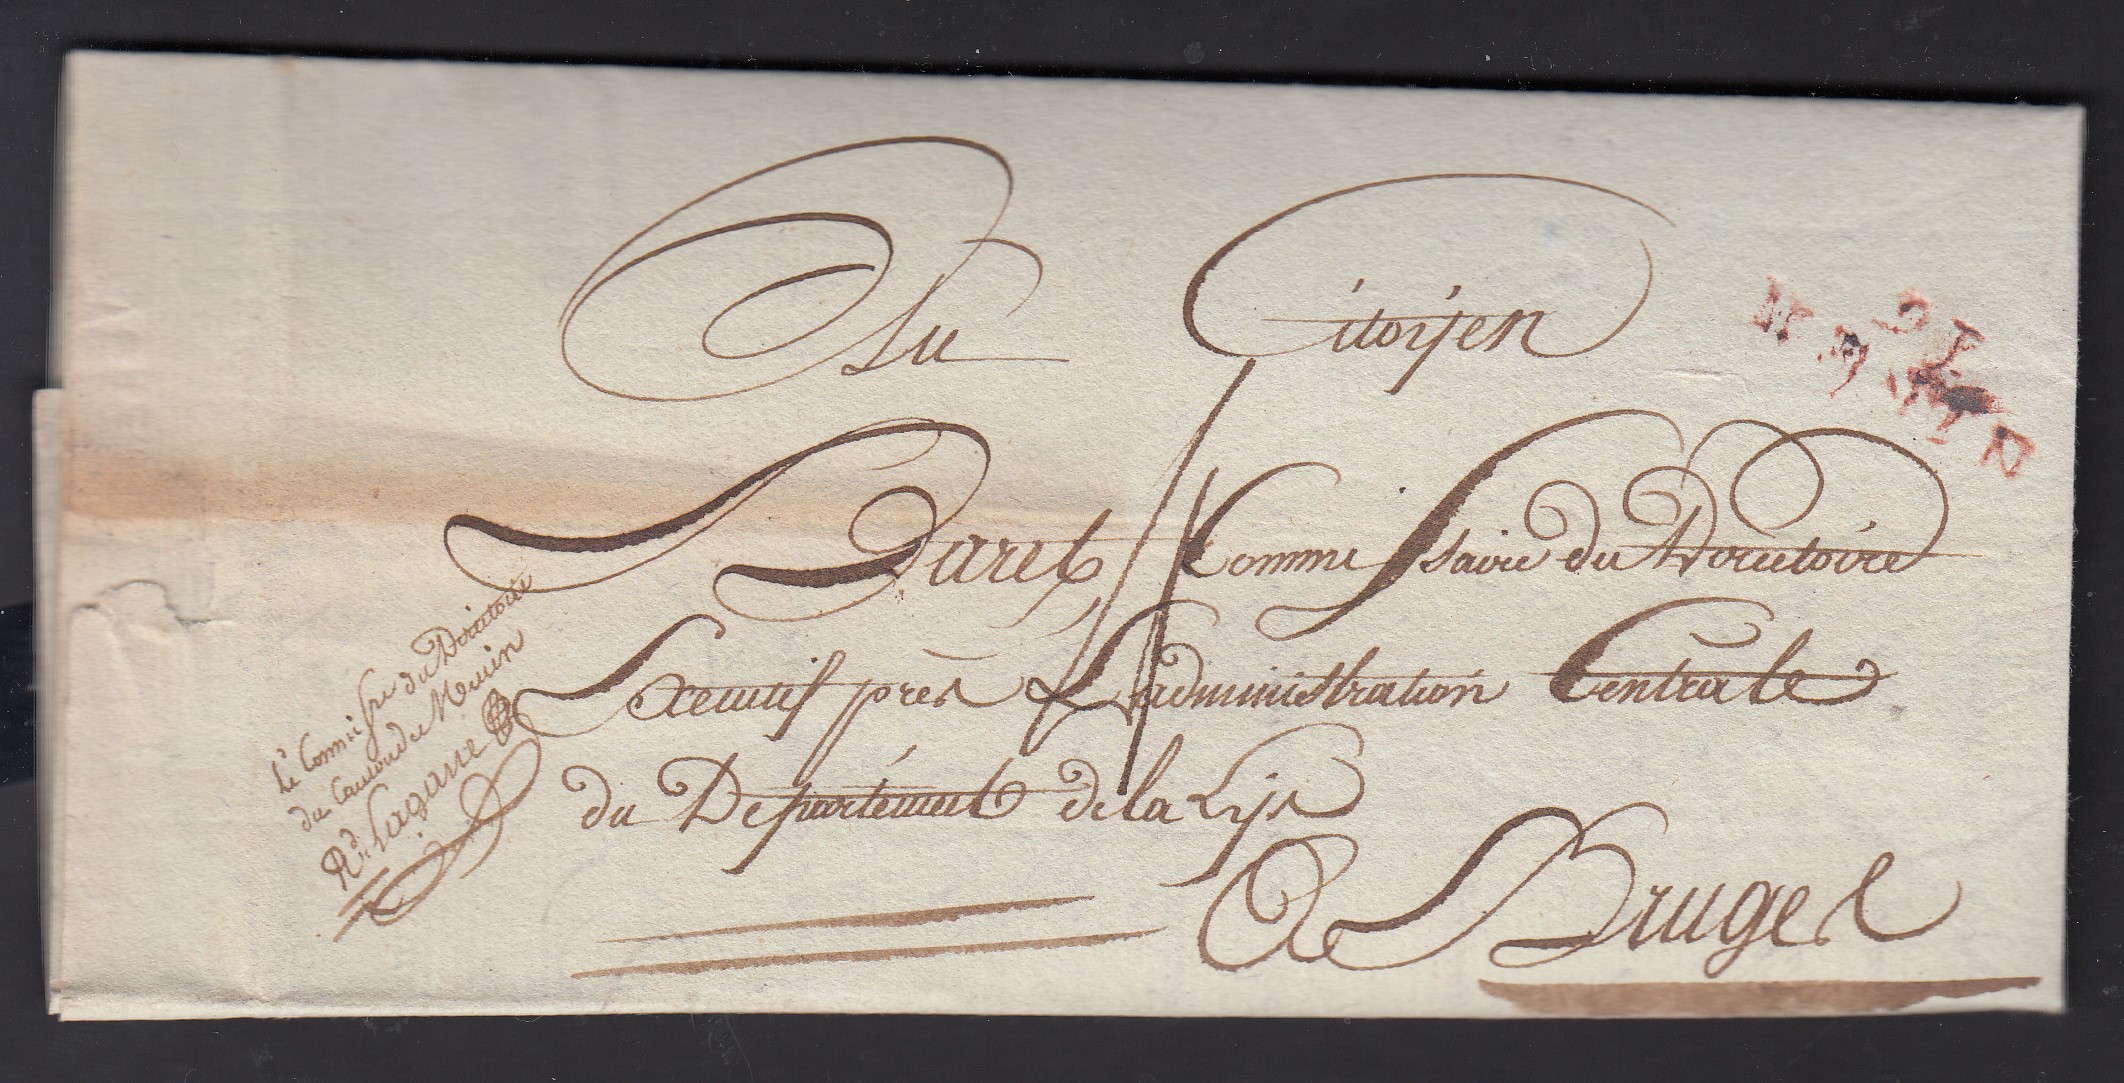 Au Citoyen
Baret Commissaire du Directoire
Executif près L'administration Centrale
du Département de la Lys
A Bruges
Le Commissre du Directoire
du Canton de Menin
Lagarre
91
MENIN